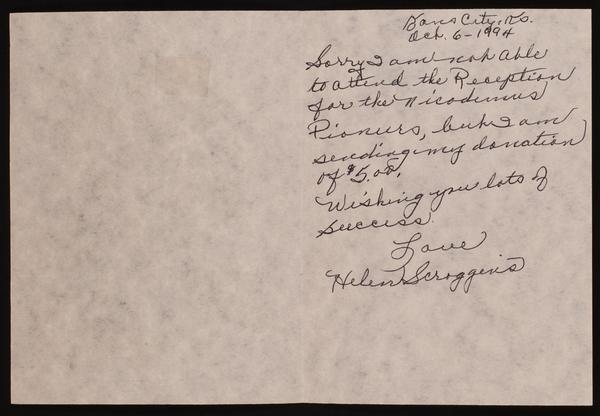 Kans City, Ks.
Oct. 6-1994
Sorry I am not able
to attend the Reception
for the Nicodemus
Pioneers, but I am
sending my donation
of $5.00.
Wishing you lots of
success.
Love
Helen Scroggins